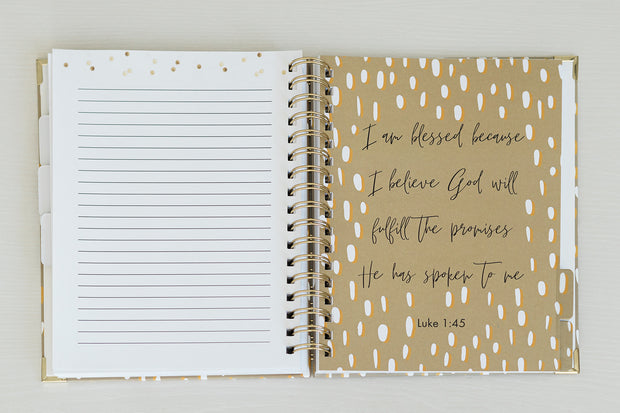 I am blessed because
I believe God will
fulfill the promises
He has spoken to me
Luke 1:45